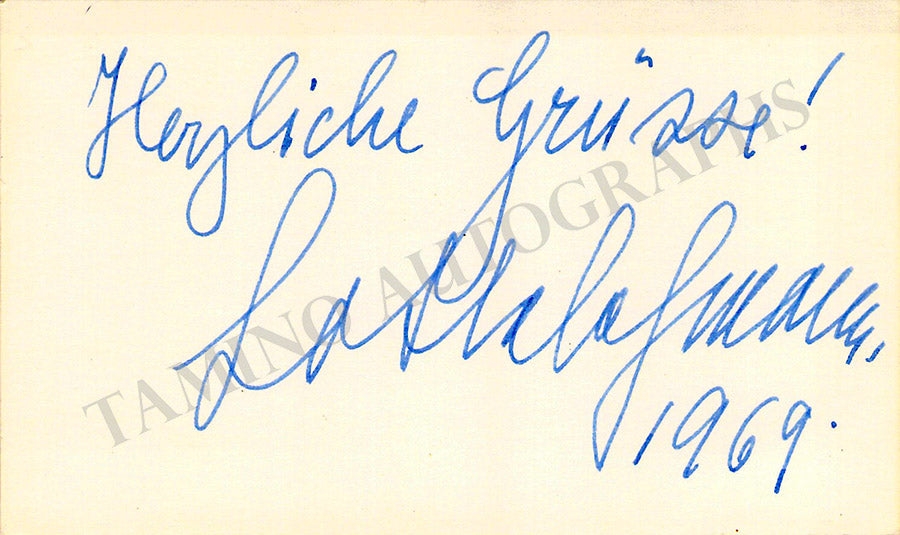 Herzliche Grüsse!
Lotte Lehmann,
1969.
TAMINO AUTOGRAPHS